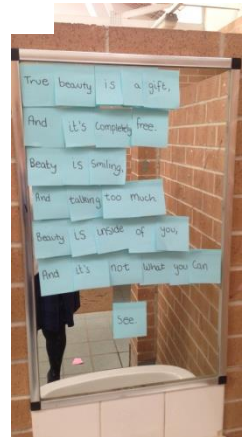 True beauty is a gift,
And it's completely free.
Beaty is smiling,
And talking too much.
Beauty is inside of you,
And it's not what you can
See.